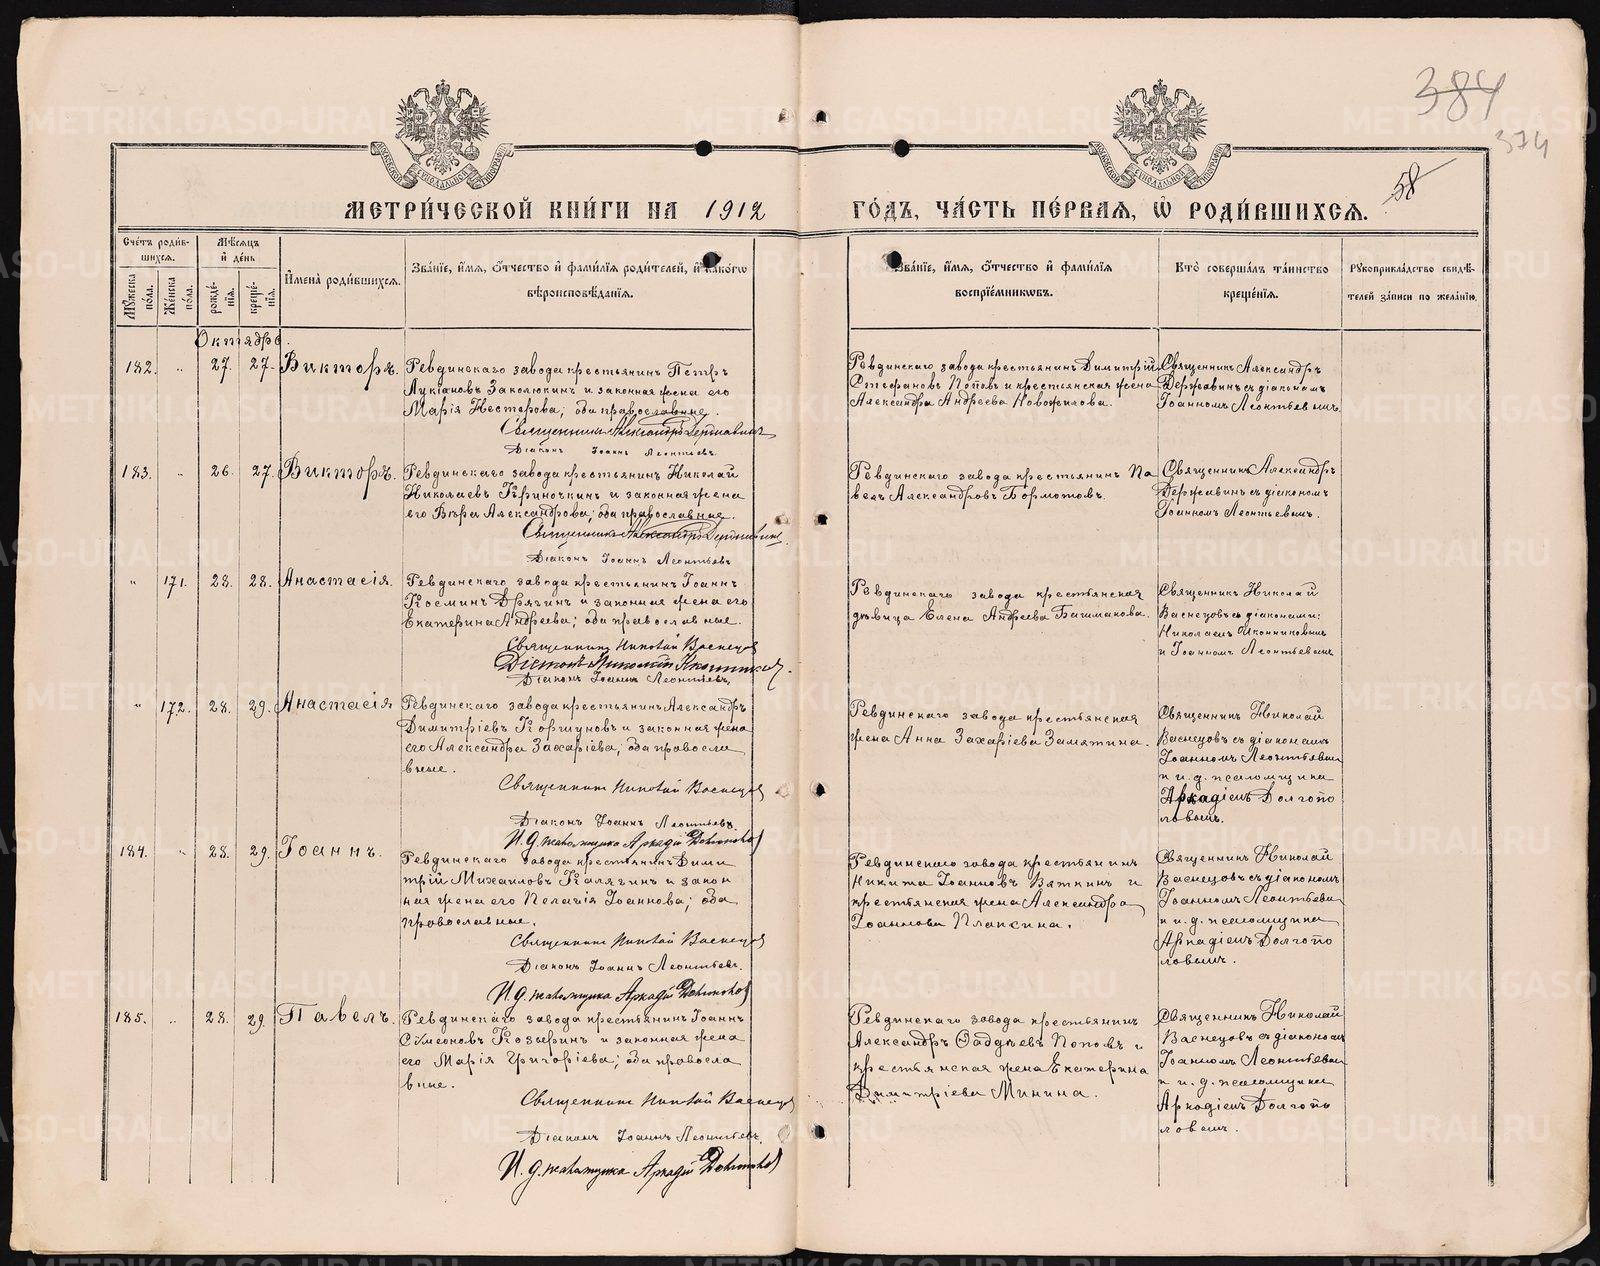 384
374
58
МЕТРИ́ЧЕСКОЙ КНИ́ГИ НА 1912
ГО́ДЪ, ЧА́СТЬ ПЕ́РВАЯ, Ѡ РОДИ́ВШИХСЯ.
Сче́тъ роди́в-
шихся.
Мѣ́сяцъ
и де́нь
Мꙋ́жеска по́ла.
Же́нска по́ла.
рожде́-нїя.
креще́-нїя.
И҆мена̀ роди́вшихся.
Зва́нїе, и҆́мя, ѻ҆́тчество и҆ фами́лїя роди́телей, и҆ како́гѡ
вѣроисповѣ́данїя.
Зва́нїе, и҆́мя, ѻ҆́тчество и҆ фами́лїя
воспрїе́мникѡвъ.
Кто̀ соверша́лъ та́инство
креще́нїя.
Рꙋкоприкла́дство свидѣ́-
телей за́писи по жела́нїю.
Октябрь.
182. „ 27. 27. Викторъ.
Ревдинскаго завода крестьянинъ Петръ
Лукіановъ Заколюкинъ и законная жена его
Марія Нестерова; оба православные.
Священникъ Александръ Державинъ
Діаконъ Іоаннъ Леонтьевъ.
Ревдинскаго завода крестьянинъ Димитрій
Стефановъ Поповъ и крестьянская жена
Александра Андреева Новожилова.
Священникъ Александръ
Державинъ съ діакономъ
Іоанномъ Леонтьевымъ.
183. „ 26. 27. Викторъ.
Ревдинскаго завода крестьянинъ Николай
Николаевъ Кириночкинъ и законная жена
его Вѣра Александрова; оба православные.
Священникъ Александръ Державинъ
Діаконъ Іоаннъ Леонтьевъ
Ревдинскаго завода крестьянинъ Па
велъ Александровъ Бормотовъ.
Священникъ Александръ
Державинъ съ діакономъ
Іоанномъ Леонтьевымъ.
„ 171. 28. 28. Анастасія.
Ревдинскаго завода крестьянинъ Іоаннъ
Косминъ Дрягинъ и законная жена его
Екатерина Андреева; оба православные.
Священникъ Николай Васнецовъ
Діаконъ Николай Иконниковъ.
Діаконъ Іоаннъ Леонтьевъ.
Ревдинскаго завода крестьянская
дѣвица Елена Андреева Башмакова.
Священникъ Николай
Васнецовъ съ діаконами:
Николаемъ Иконниковымъ
и Іоанномъ Леонтьевымъ
„ 172. 28. 29. Анастасія
Ревдинскаго завода крестьянинъ Александръ
Димитріевъ Коршуновъ и законная жена
его Александра Захаріева; оба правосла
вные.
Священникъ Николай Васнецовъ
Діаконъ Іоаннъ Леонтьевъ.
И. д. псаломщика Аркадій Долгополовъ
Ревдинскаго завода крестьянская
жена Анна Захаріева Замятина.
Священникъ Николай
Васнецовъ съ діакономъ
Іоанномъ Леонтьевым
и и. д. псаломщика
Аркадіемъ Долгопо
ловымъ.
184. „ 28. 29. Іоаннъ.
Ревдинскаго завода крестьянинъ Дими
трій Михаиловъ Калягинъ и закон
ная жена его Пелагія Іоаннова; оба
православные.
Священникъ Николай Васнецовъ
Діаконъ Іоаннъ Леонтьевъ.
И. д. псаломщика Аркадій Долгополовъ
Ревдинскаго завода крестьянинъ
Никита Іоанновъ Вяткинъ и
крестьянская жена Александра
Іоаннова Плаксина.
Священникъ Николай
Васнецовъ съ діакономъ
Іоанномъ Леонтьевым
и и. д. псаломщика
Аркадіемъ Долгопо
ловымъ.
185. „ 28. 29. Павелъ.
Ревдинскаго завода крестьянинъ Іоаннъ
Симеоновъ Козыринъ и законная жена
его Марія Григоріева; оба правосла
вные.
Священникъ Николай Васнецовъ
Діаконъ Іоаннъ Леонтьевъ.
И. д. псаломщика Аркадій Долгополовъ
Ревдинскаго завода крестьянинъ
Александръ Ѳаддѣевъ Поповъ и
крестьянская жена Екатерина
Димитріева Минина.
Священникъ Николай
Васнецовъ съ діакономъ
Іоанномъ Леонтьевым
и и. д. псаломщика
Аркадіемъ Долгопо
ловымъ.
METRIKI.GASO-URAL.RU